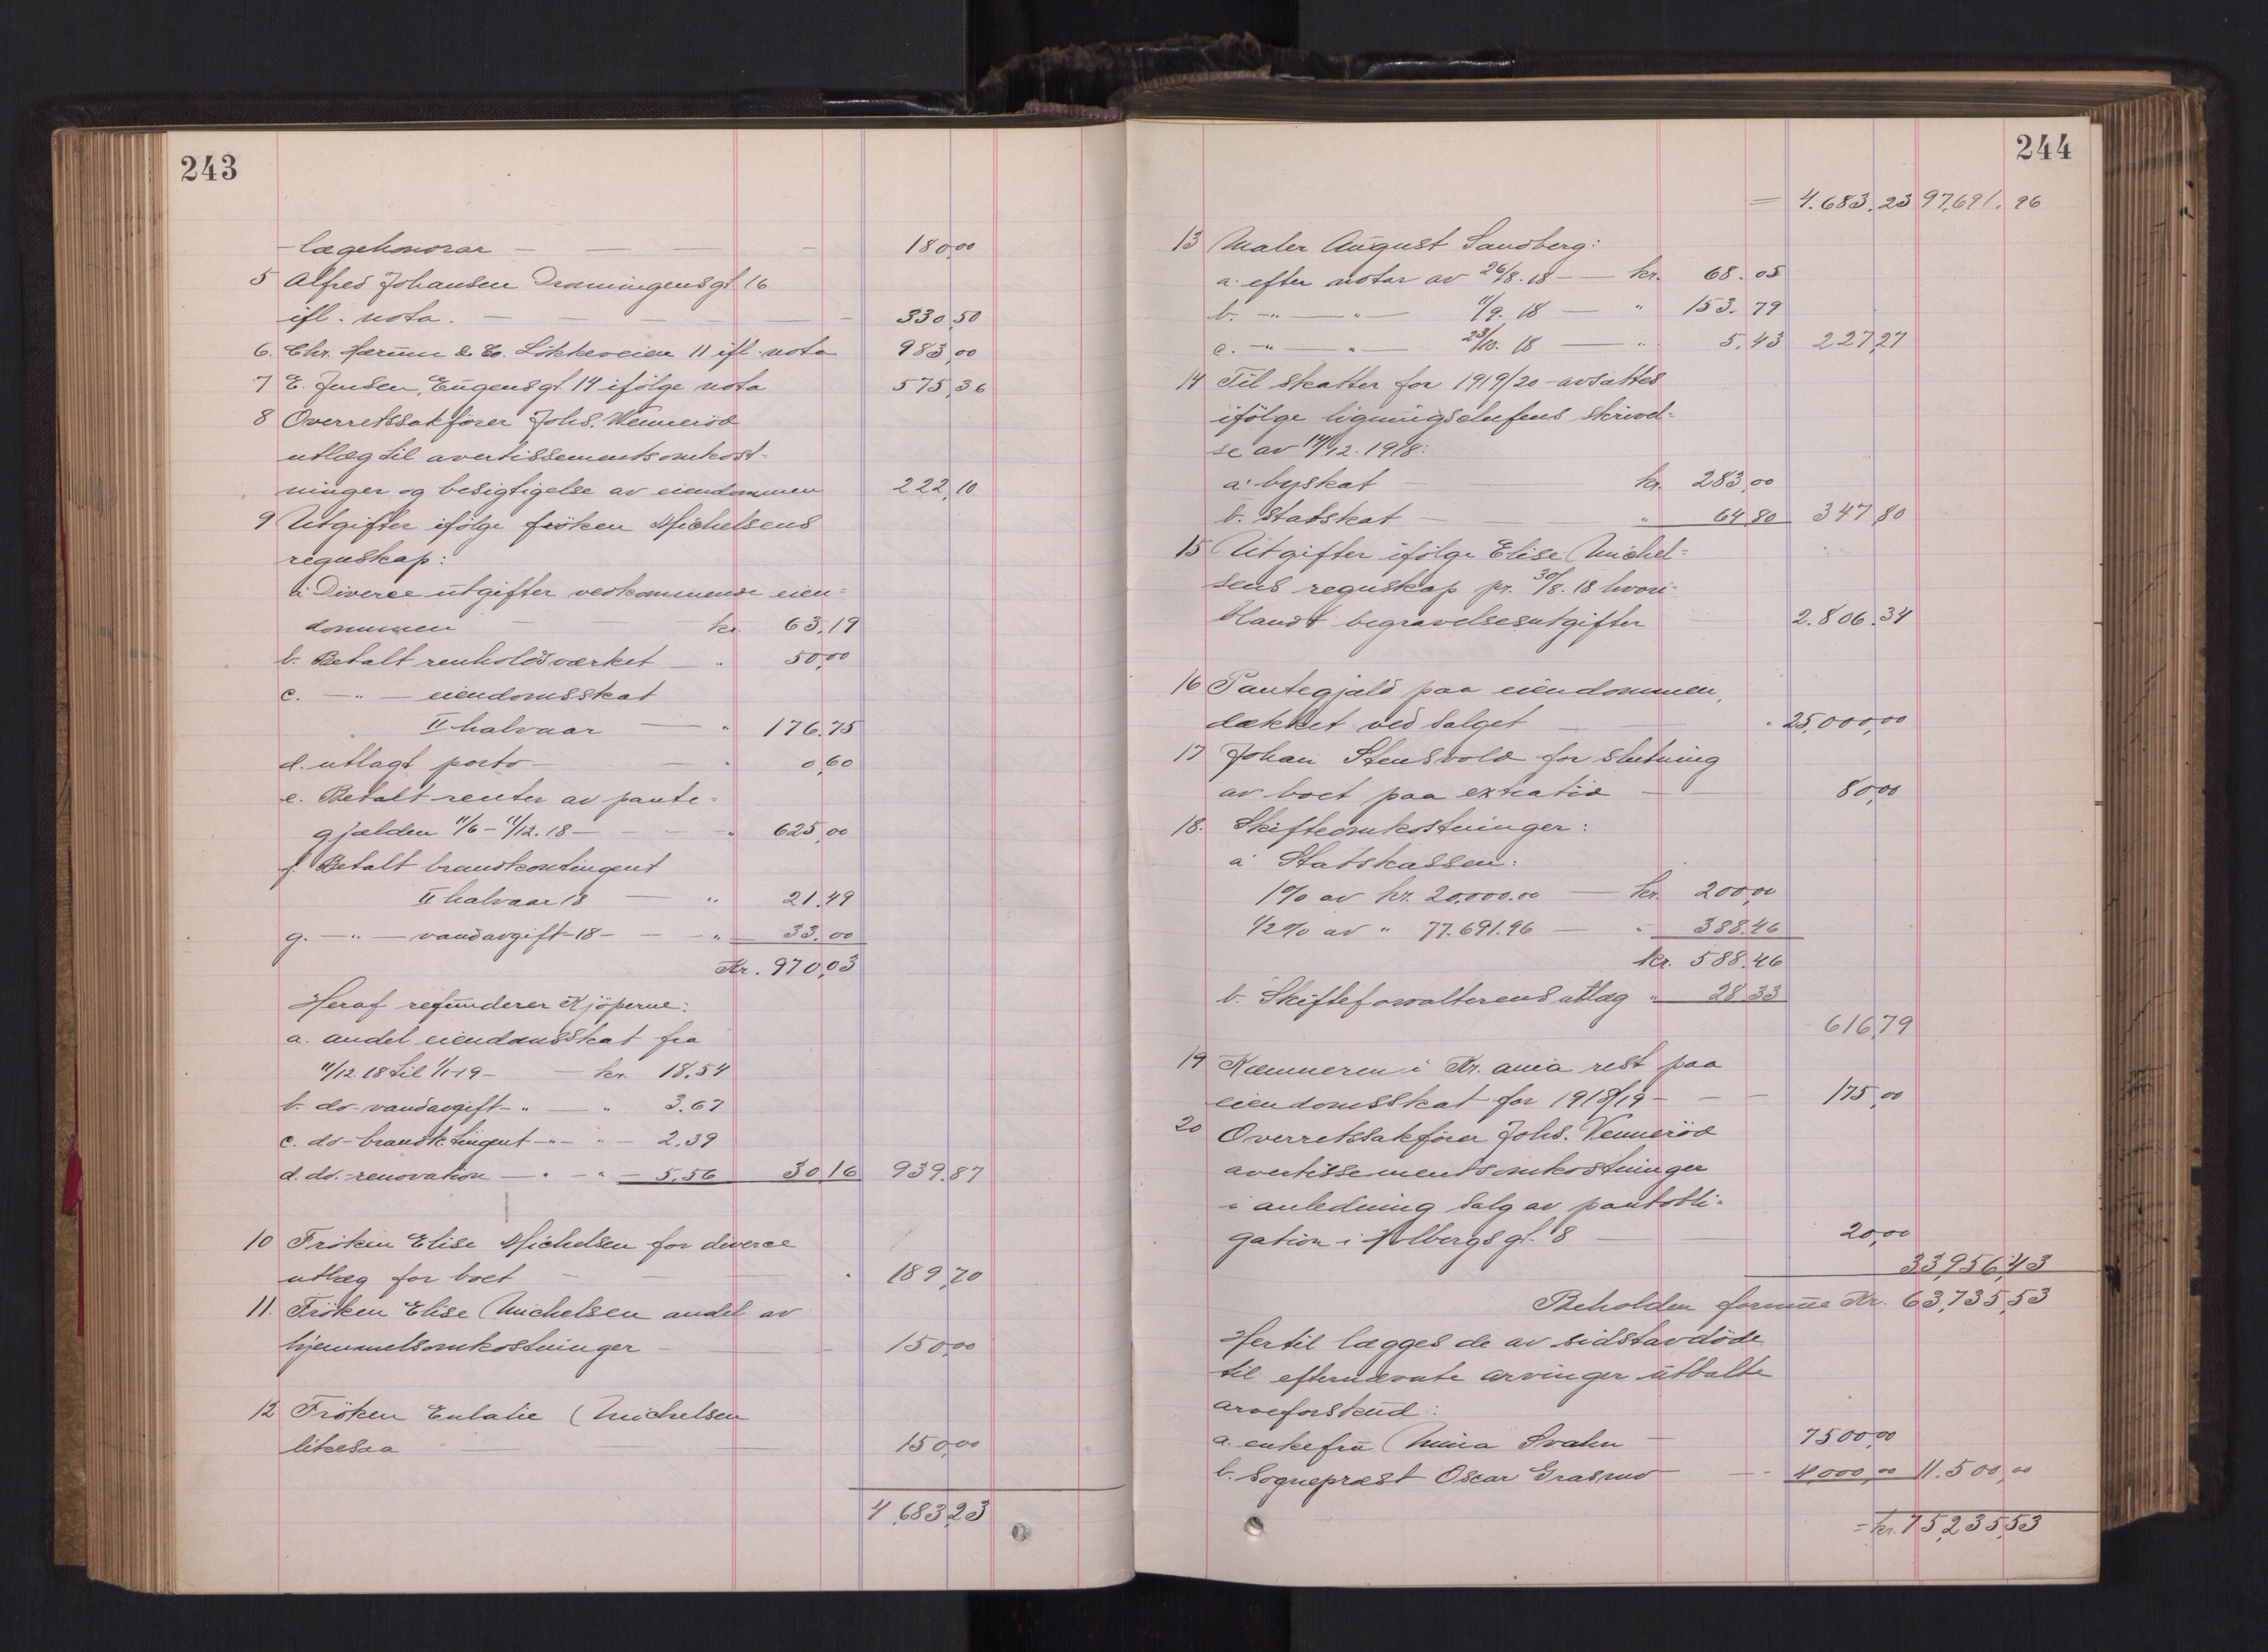 243
lægehonorar — — — — 180,00
5 Alfred Johansen Dronningensgt 16
ifl. nota. — — — — — 330,50
6. Chr. Hærum & Co. Lökkeveien 11 ifl. nota 983,00
7 E. Jensen, Eugensgt. 14 ifölge nota 575,36
8 Overretssakförer Johs. Venneröd
utlæg til avertissementsomkost-
ninger og besigtigelse av eiendommen 222,10
9 Utgifter ifölge fröken Michelsens
regnskap:
a. Diverse utgifter vedkommende eien-
dommen — — kr. 63,19
b. Betalt renholdsværket — " 50,00
c. — " — eiendomsskat
II halvaar — " 176.75
d. utlagt porto — — " 0,60
e. Betalt renter av pante-
gjælden 11/6 - 11/12. 18 — — — " 625,00
f. Betalt brandkontingent
II halvaar 18 — " 21.49
g. — " — vandavgift - 18 — — " 33.00
Kr. 970,03
Heraf refunderer Kjöperne:
a. andel eiendomsskat fra
11/12. 18 til 1/1-19 — — kr. 18.54
b. do - vandavgift - " — " 3.67
c. do - brandk.tingent - " — " — 2.39
d. do. - renovation — " — " — 5.56 30,16 939.87
10 Fröken Elise Michelsen for diverse
utlæg for boet — — — 189,70
11. Fröken Elise Michelsen andel av
hjemmelsomkostninger — — — 150,00
12 Fröken Eulalie Michelsen
likesaa — 150,00
4,683,23
244
= 4.683.23 97,691.96
13 Maler August Sandberg:
a. efter notar av 26/8. 18 — — kr. 68.05
b. — " — " — 11/9. 18 — " 153.79
c. — " — " — 23/10. 18 — " 5.43 227,27
14 Til skatter for 1919/20 - avsattes
ifölge ligningschefens skrivel-
se av 14/12. 1918:
a. byskat — kr. 283,00
b. statskat — " 64,80 347,80
15 Utgifter ifölge Elise Michel-
sens regnskap pr. 30/8. 18 hvori-
blandt begravelsesutgifter 2.806.34
16 Pantegjæld paa eiendommen,
dækket ved salget — 25,000,00
17 Johan Stensvold for slutning
av boet paa extratid — 80,00
18. Skifteomkostninger:
a. Statskassen:
1% av kr. 20.000.00 — kr. 200,00
1/2% av " 77.691.96 — " 388.46
kr. 588.46
b. Skifteforvalterens utlæg " 28.33
616,79
19 Kæmneren i Kr. ania rest paa
eiendomsskat for 1918/19 — — — 175,00
20 Overretssakförer Johs. Venneröd
avertissementsomkostninger
i anledning salg av pantobli-
gation i Holbergsgt. 8 — 20,00
33,956,43
Beholden formue Kr. 63,735,53
Hertil lægges de av sidstavdöde
til efternævnte arvinger utbetalte
arveforskud:
a. enkefru Mina Svahn — 7500,00
b. Sogneprest Oscar Grasrud — 4,000,00 11.500,00
= kr. 75,235,53